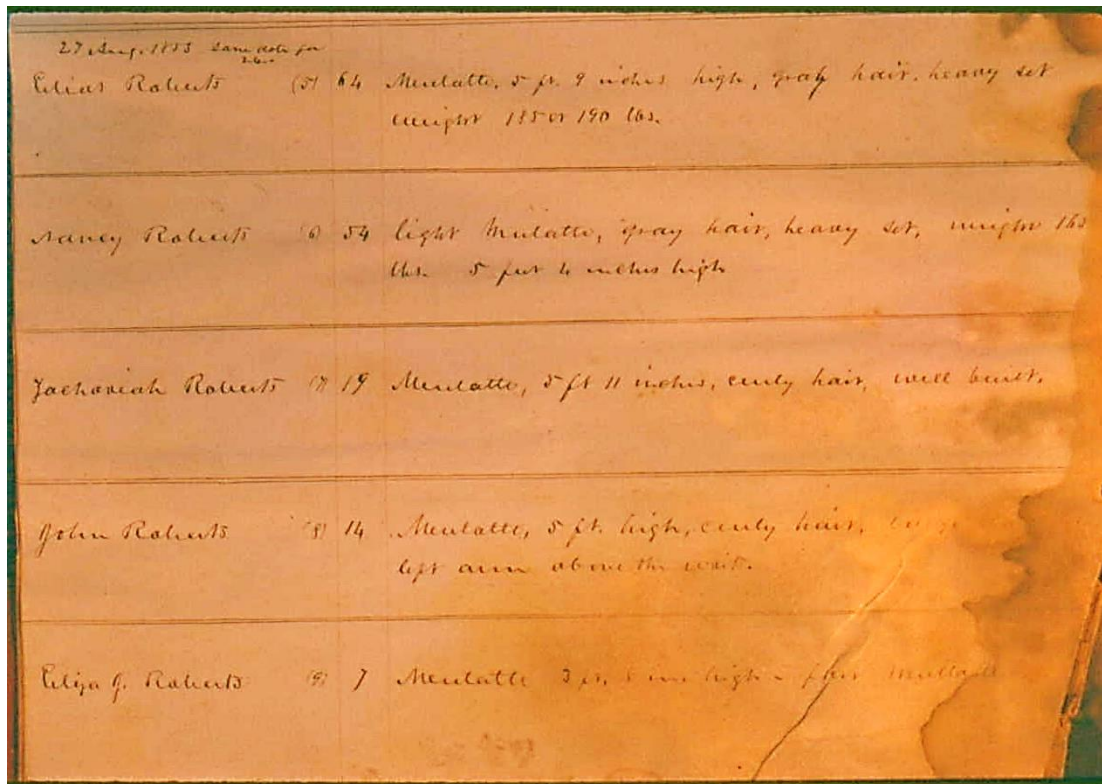 27 Aug. 1853 Same date for
Elias Roberts (5) 64 Mulatto, 5 ft. 9 inches high, gray hair, heavy set
weight 185 or 190 lbs.
Nancy Roberts (6) 54 light Mulatto, gray hair, heavy set, weight
lbs. 5 feet 4 inches high
Zachariah Roberts (7) 19 Mulatto, 5 ft 11 inches, curly hair, well built.
John Roberts (8) 14 Mulatto, 5 ft. high, curly hair,
left arm above the
Eliza J. Roberts (9) 7 Mulatto 3 ft, high - fair